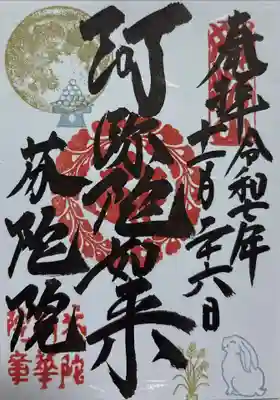 奉拝 令和七年
十一月二十六日
阿弥陀如来
芬陀院
芬陀
利華
院章